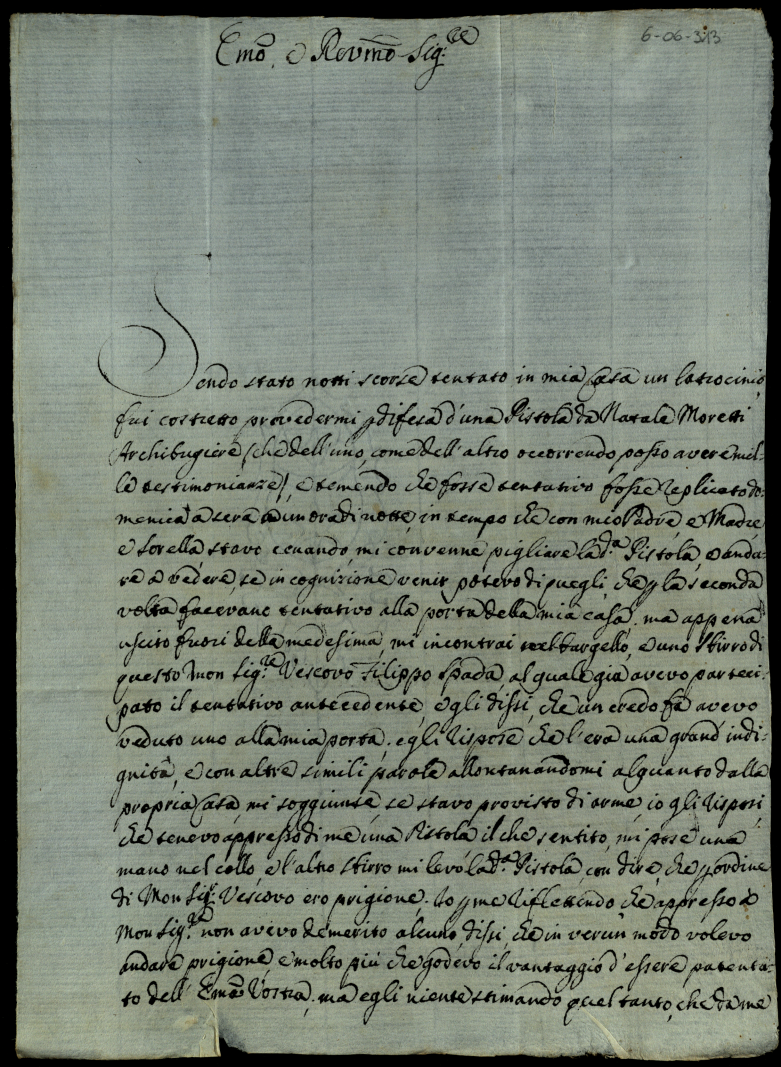 6-06-313
Emo. e Revmo Sig.re
Sendo stato notti scorse tentato in mia Casa un latrocinio,
fui costretto provedermi p difesa d'una Pistola da Natale Moretti
Archibugiere (che dell'uno, come dell'altro occorrendo posso avere mil-
le testimonianze), e temendo che forse tentativo fosse replicato do-
menica à sera à un'ora di notte, in tempo che con mio Padre e Madre
e sorella stavo cenando, mi convenne pigliare la d.a Pistola, e anda-
re a vedere, se in cognizione venir potevo di quegli che p la seconda
volta facevano tentativo alla porta della mia casa. ma appena
uscito fuori della medesima, mi incontrai nel bargello, e uno sbirro di
questo Mon Sig.re Vescovo Filippo Spada, al quale già avevo parteci-
pato il tentativo antecedente, e gli dissi, che un credo fà avevo
veduto uno alla mia porta. egli rispose che l'era una grand'indi-
gnità, e con altre simili parole allontanandomi alquanto dalla
propria Casa, mi soggiunse se stavo provisto di arme, io gli risposi
che tenevo appresso di me una Pistola, il che sentito, mi pose una
mano nel collo, e l'altro sbirro mi levò la d.a Pistola, con dire, che p ordine
di Mon Sig.r Vescovo ero prigione. Io p me riflettendo che appresso à
Mon Sig.re non avevo demerito alcuno dissi, che in verun modo volevo
andare prigione, e molto più che godevo il vantaggio d'essere patenta-
to dell'Ema Vostra. ma egli niente stimando quel tanto, che da me